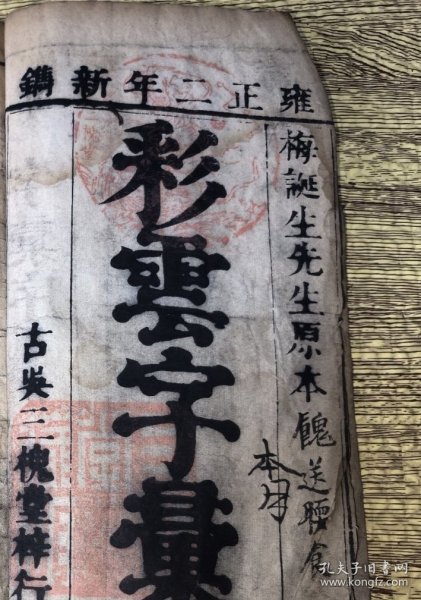 雍正二年新鐫
梅誕生先生原本
送
本
彩雲字彙
古吳三槐堂梓行
孔夫子旧书网
www.kongfz.com